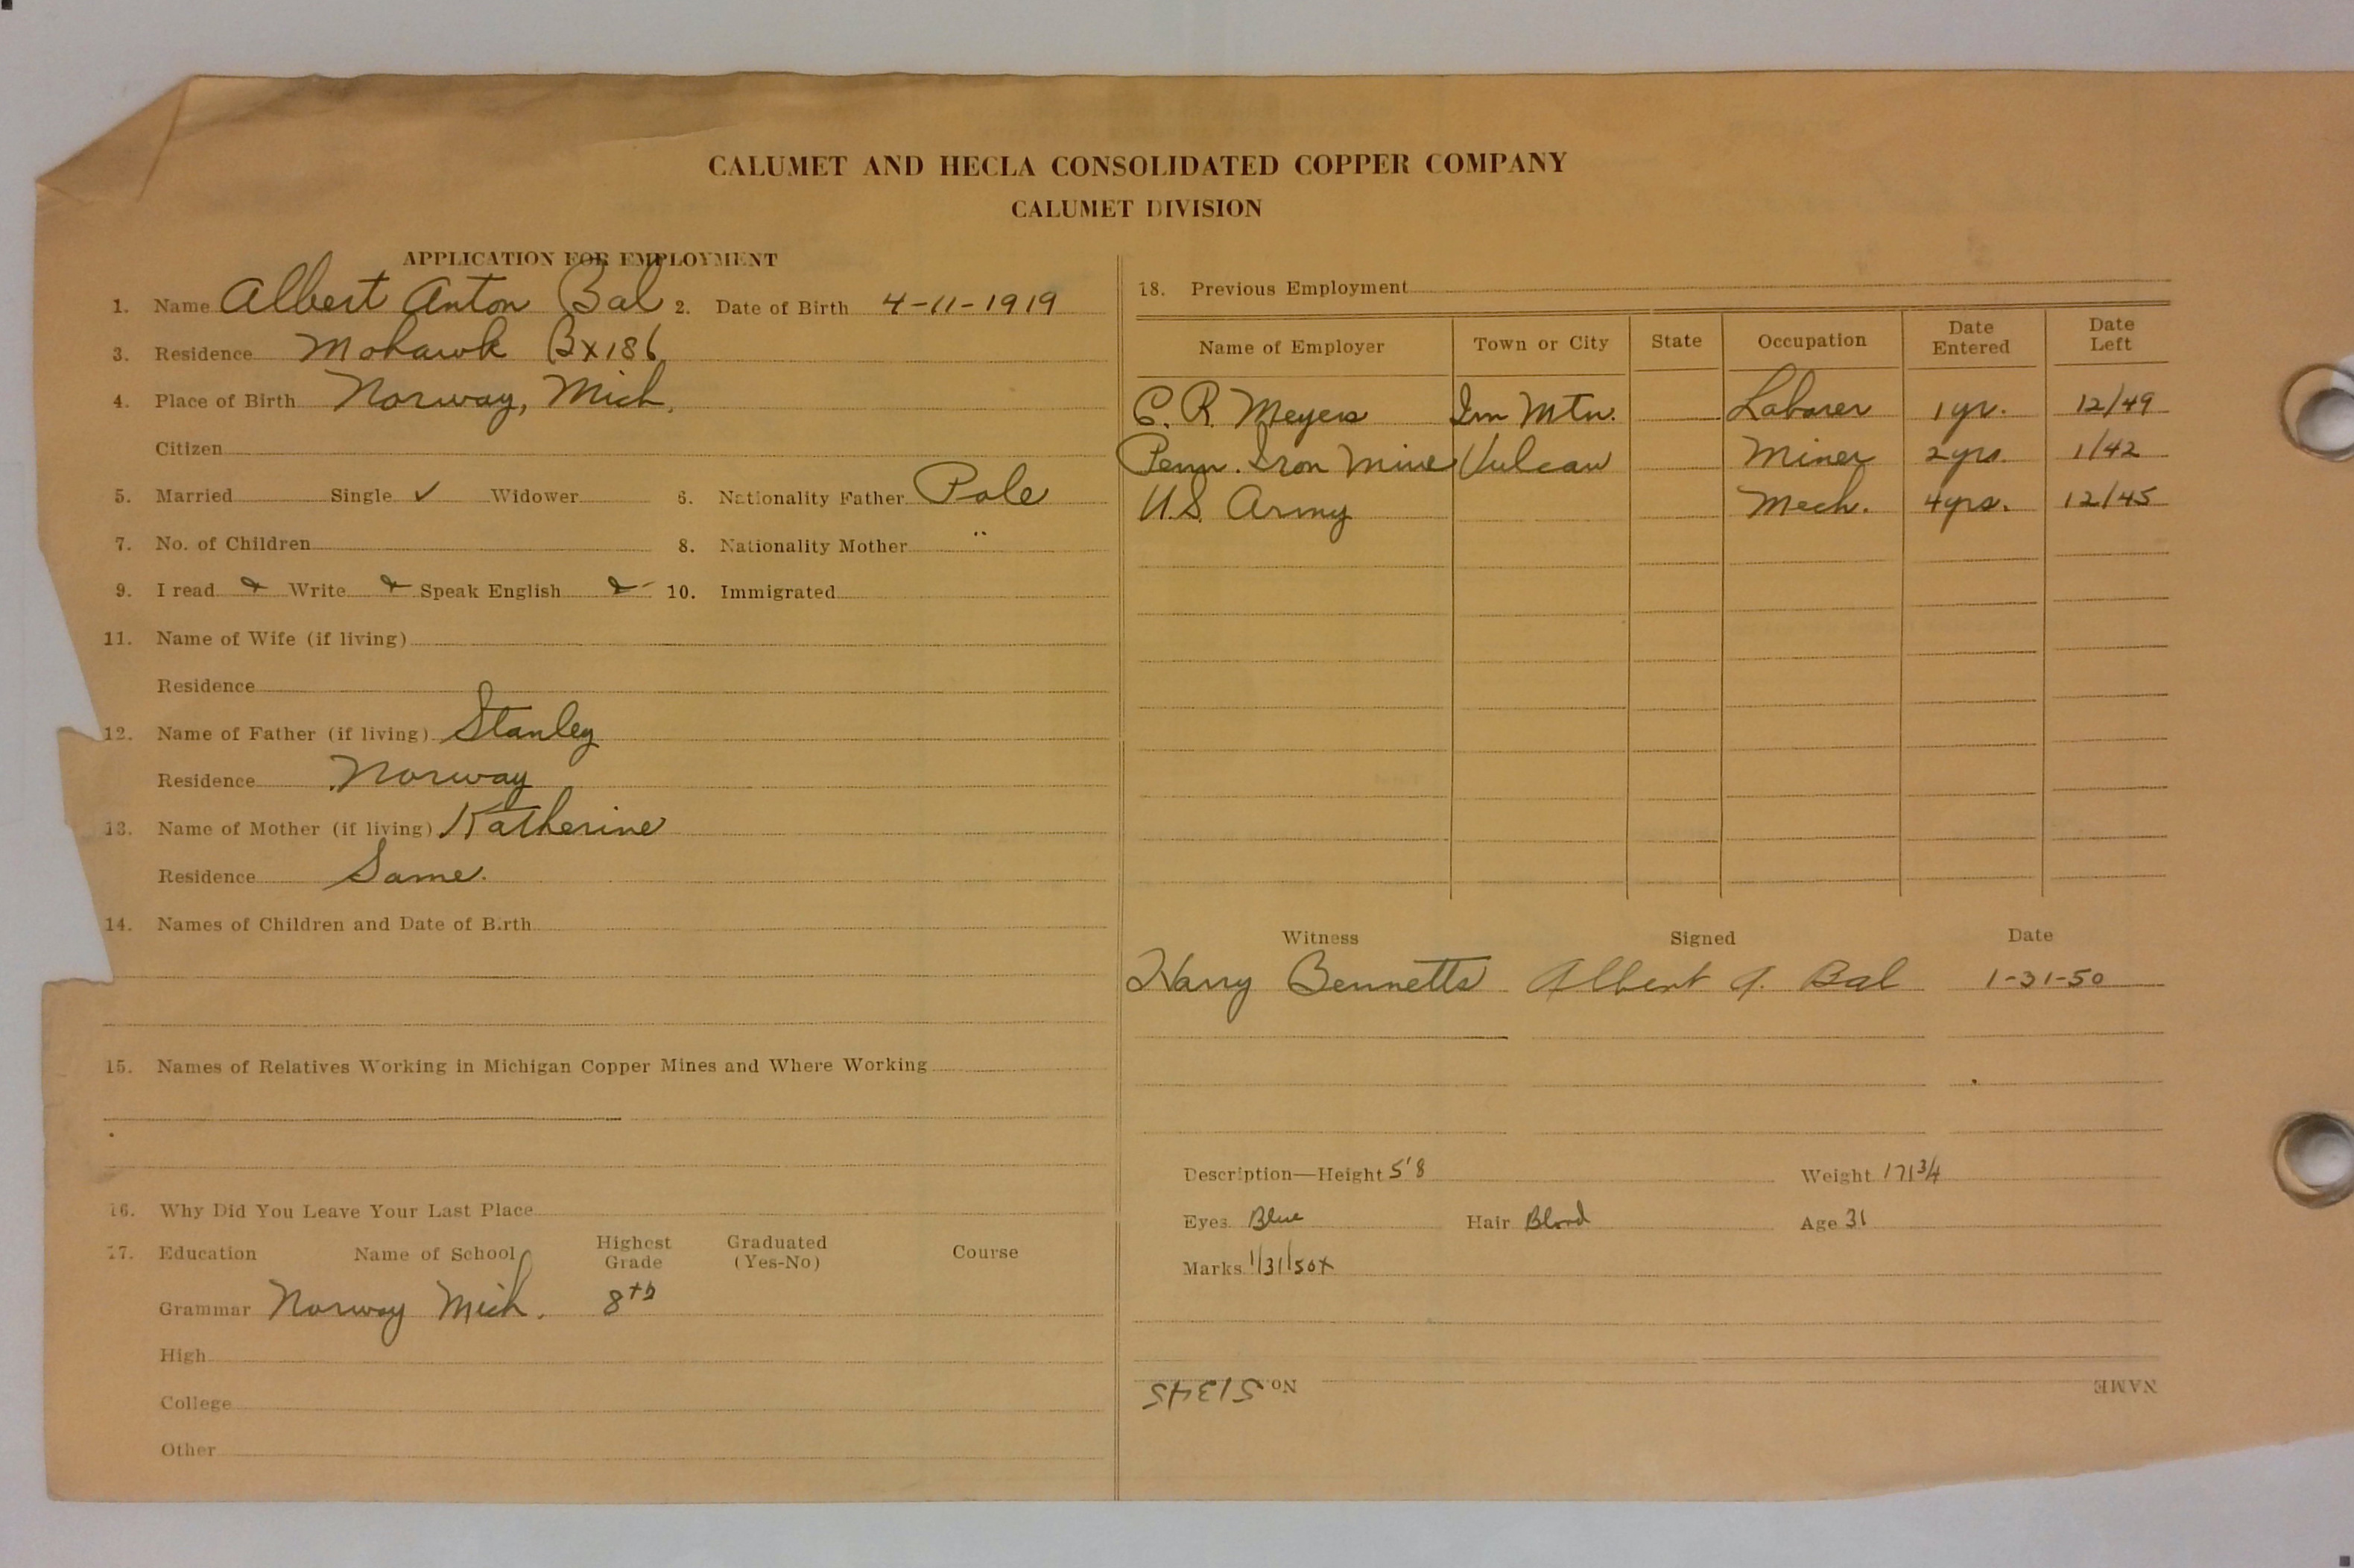 CALUMET AND HECLA CONSOLIDATED COPPER COMPANY
CALUMET DIVISION
APPLICATION FOR EMPLOYMENT
1. Name Albert Anton Bal 2. Date of Birth 4-11-1919
3. Residence Mohawk Bx186
4. Place of Birth Norway, Mich.
Citizen
5. Married Single ✓ Widower 6. Nationality Father Pole
7. No. of Children 8. Nationality Mother "
9. I read Write Speak English 10. Immigrated
11. Name of Wife (if living)
Residence
12. Name of Father (if living) Stanley
Residence Norway
13. Name of Mother (if living) Katherine
Residence Same.
14. Names of Children and Date of Birth
15. Names of Relatives Working in Michigan Copper Mines and Where Working
16. Why Did You Leave Your Last Place
17. Education Name of School Highest Grade Graduated (Yes-No) Course
Grammar Norway Mich. 8th
High
College
Other
18. Previous Employment
Name of Employer Town or City State Occupation Date Entered Date Left
C. R. Meyers Irn Mtn. Laborer 1yr. 12/49
Penn. Iron Mine Vulcan Miner 2yrs. 1/42
U.S. Army Mech. 4yrs. 12/45
Witness Signed Date
Harry Bennetts Albert A. Bal 1-31-50
Description—Height 5'8 Weight 171 3/4
Eyes Blue Hair Blond Age 31
Marks 1/31/50x
NAME No. 51345